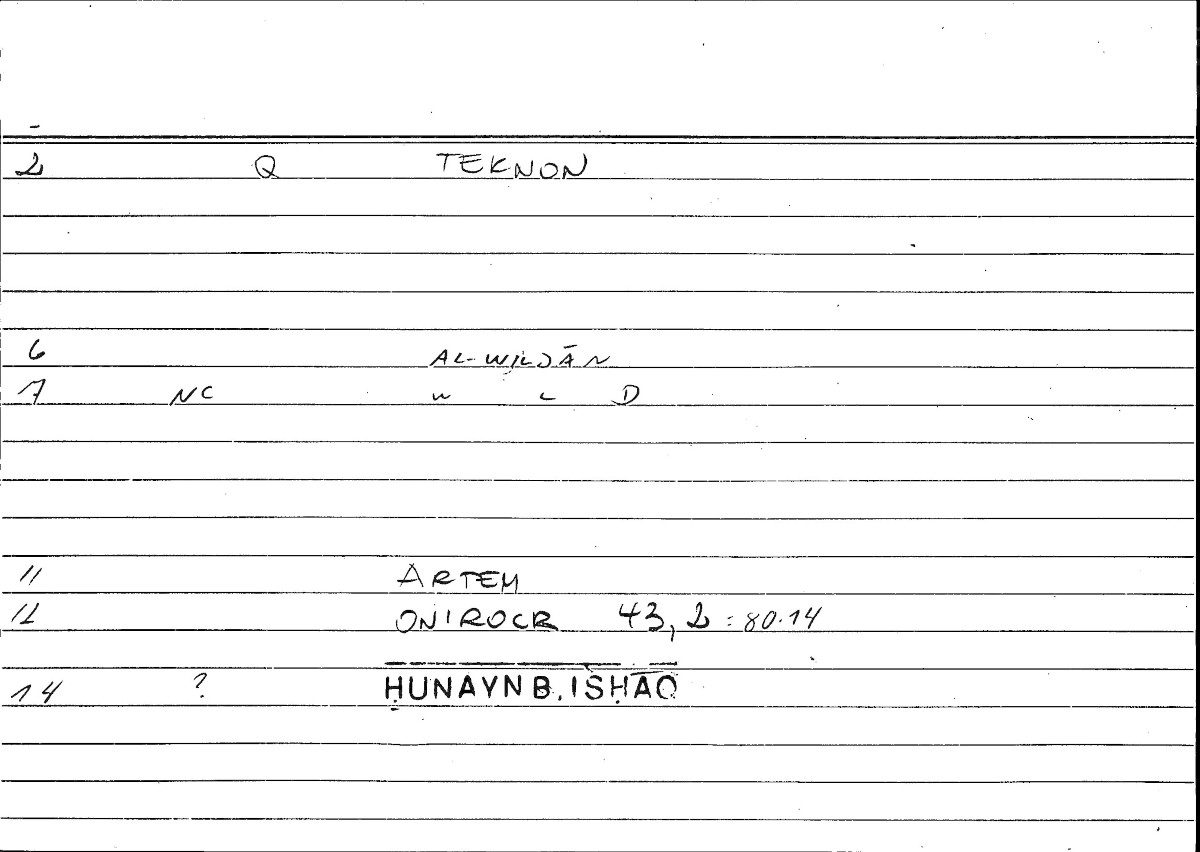 2 Q TEKNON
6 AL-WILDĀN
7 NC W L D
11 ARTEM
12 ONIROCR 43, 2 : 80.14
14 ? ḤUNAYN B. ISḤĀQ